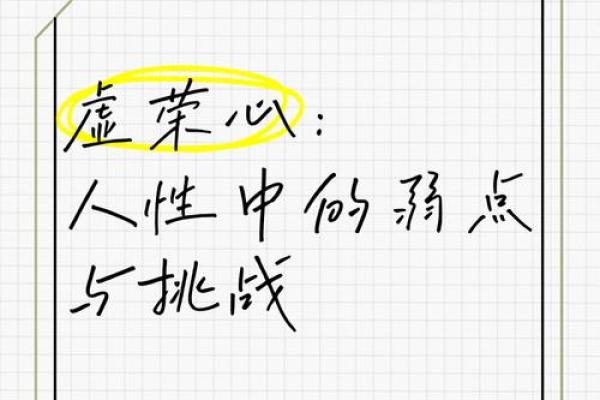 虚荣心：
人性中的弱点
与挑战